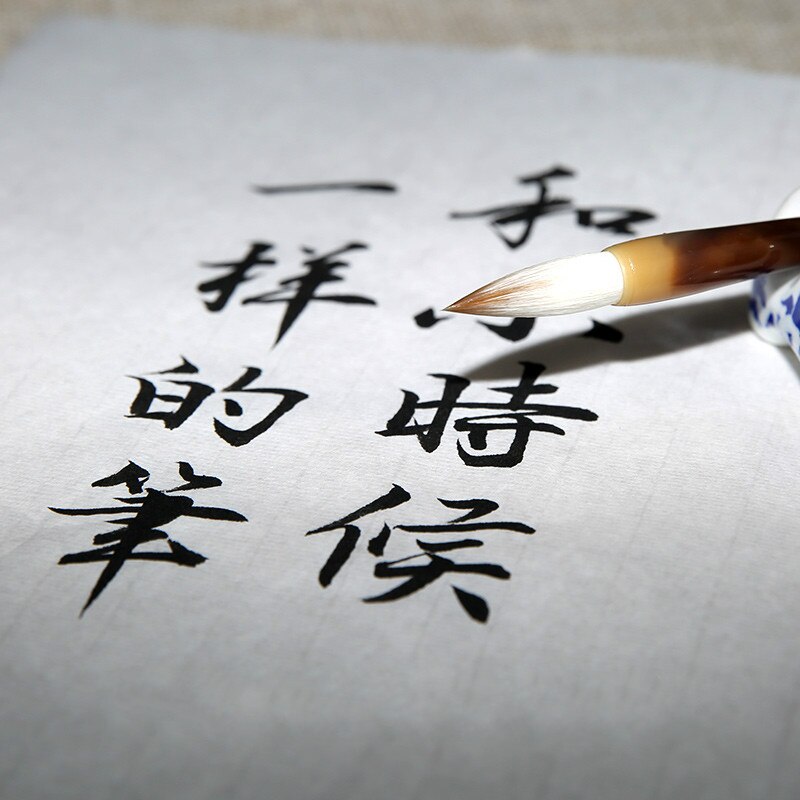 和小時候
一样的筆